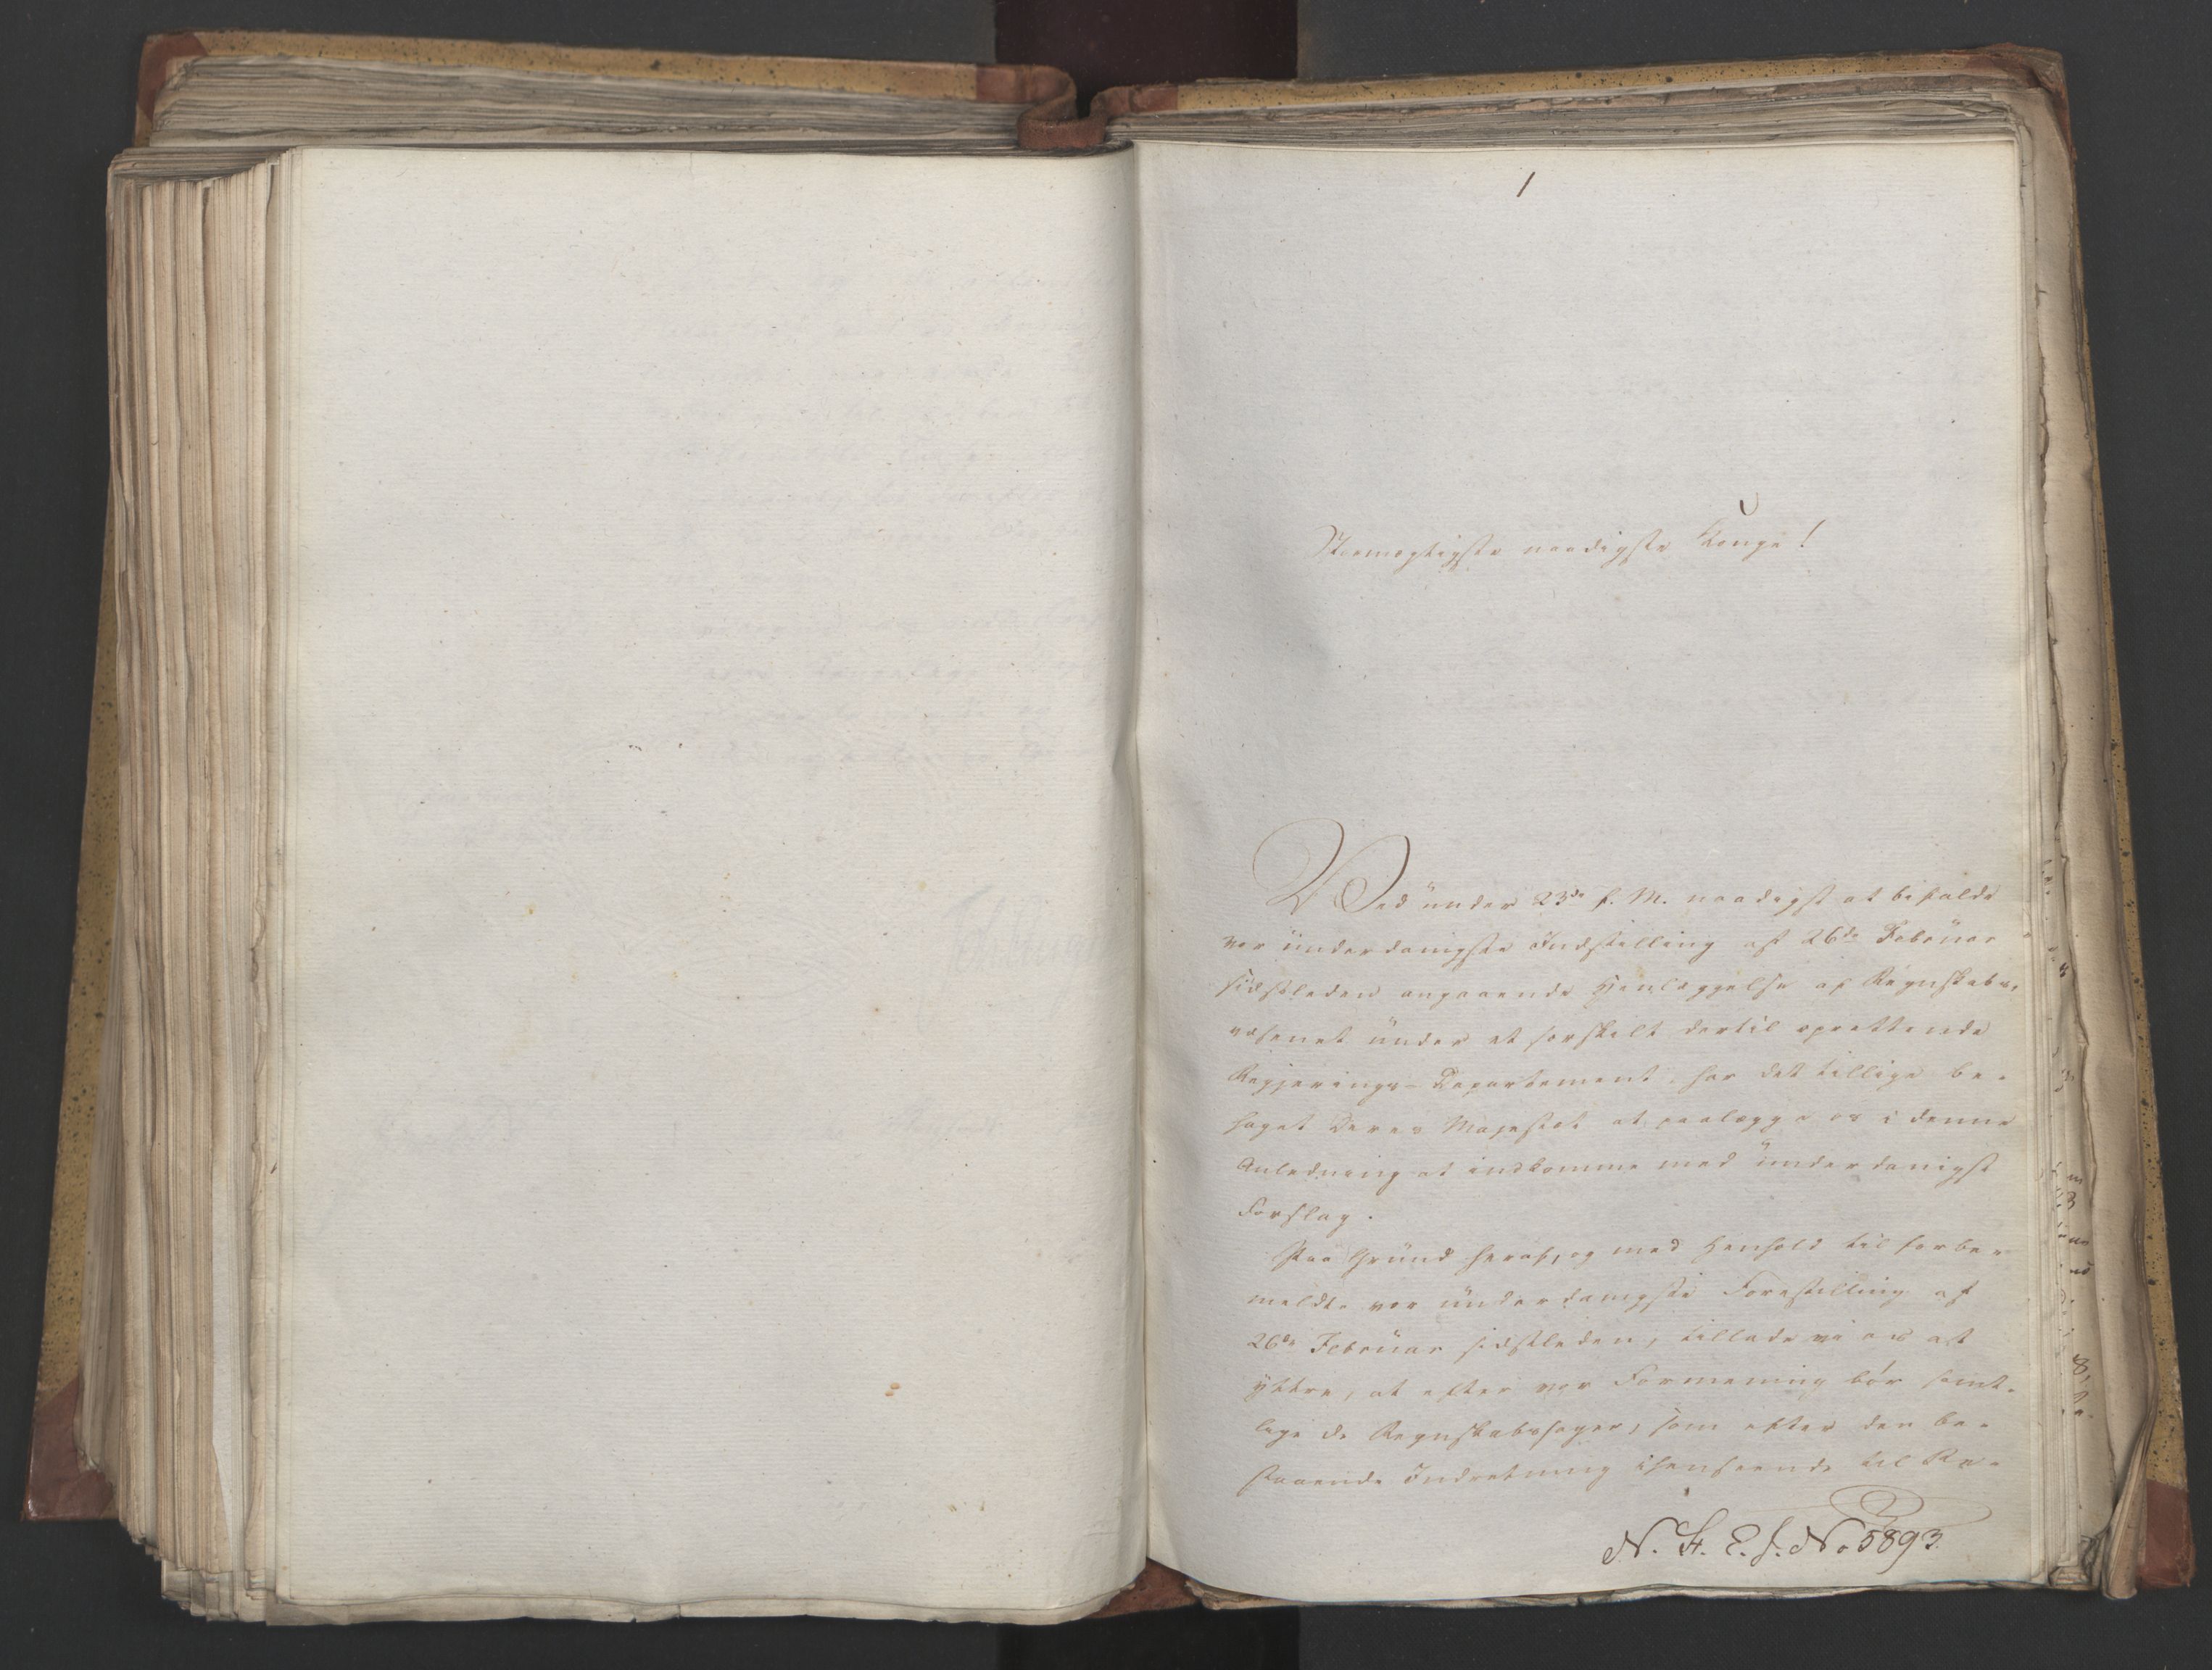 1
Stormegtigste naadigste Konge!
Ved under 23de f. M. naadigst at bifalde
vor underdanigste Indstilling af 26de Februar
sidstleden angaaende Henlæggelse af Regnskabs-
væsenet under et særskilt dertil oprettende
Regjerings-Departement, har det tillige be-
haget Deres Majestæt at paalægge os i denne
Anledning at indkomme med underdanigst
Forslag.
Paa Grund heraf, og med Henhold til forbe-
meldte vor underdanigste Forestilling af
26de Februar sidstleden, tillade vi os at
yttre, at efter vor Formening bør samt-
lige de Regnskabssager, som efter den be-
staaende Indretning ihenseende til Re-
N. H. E. f. No 5893.